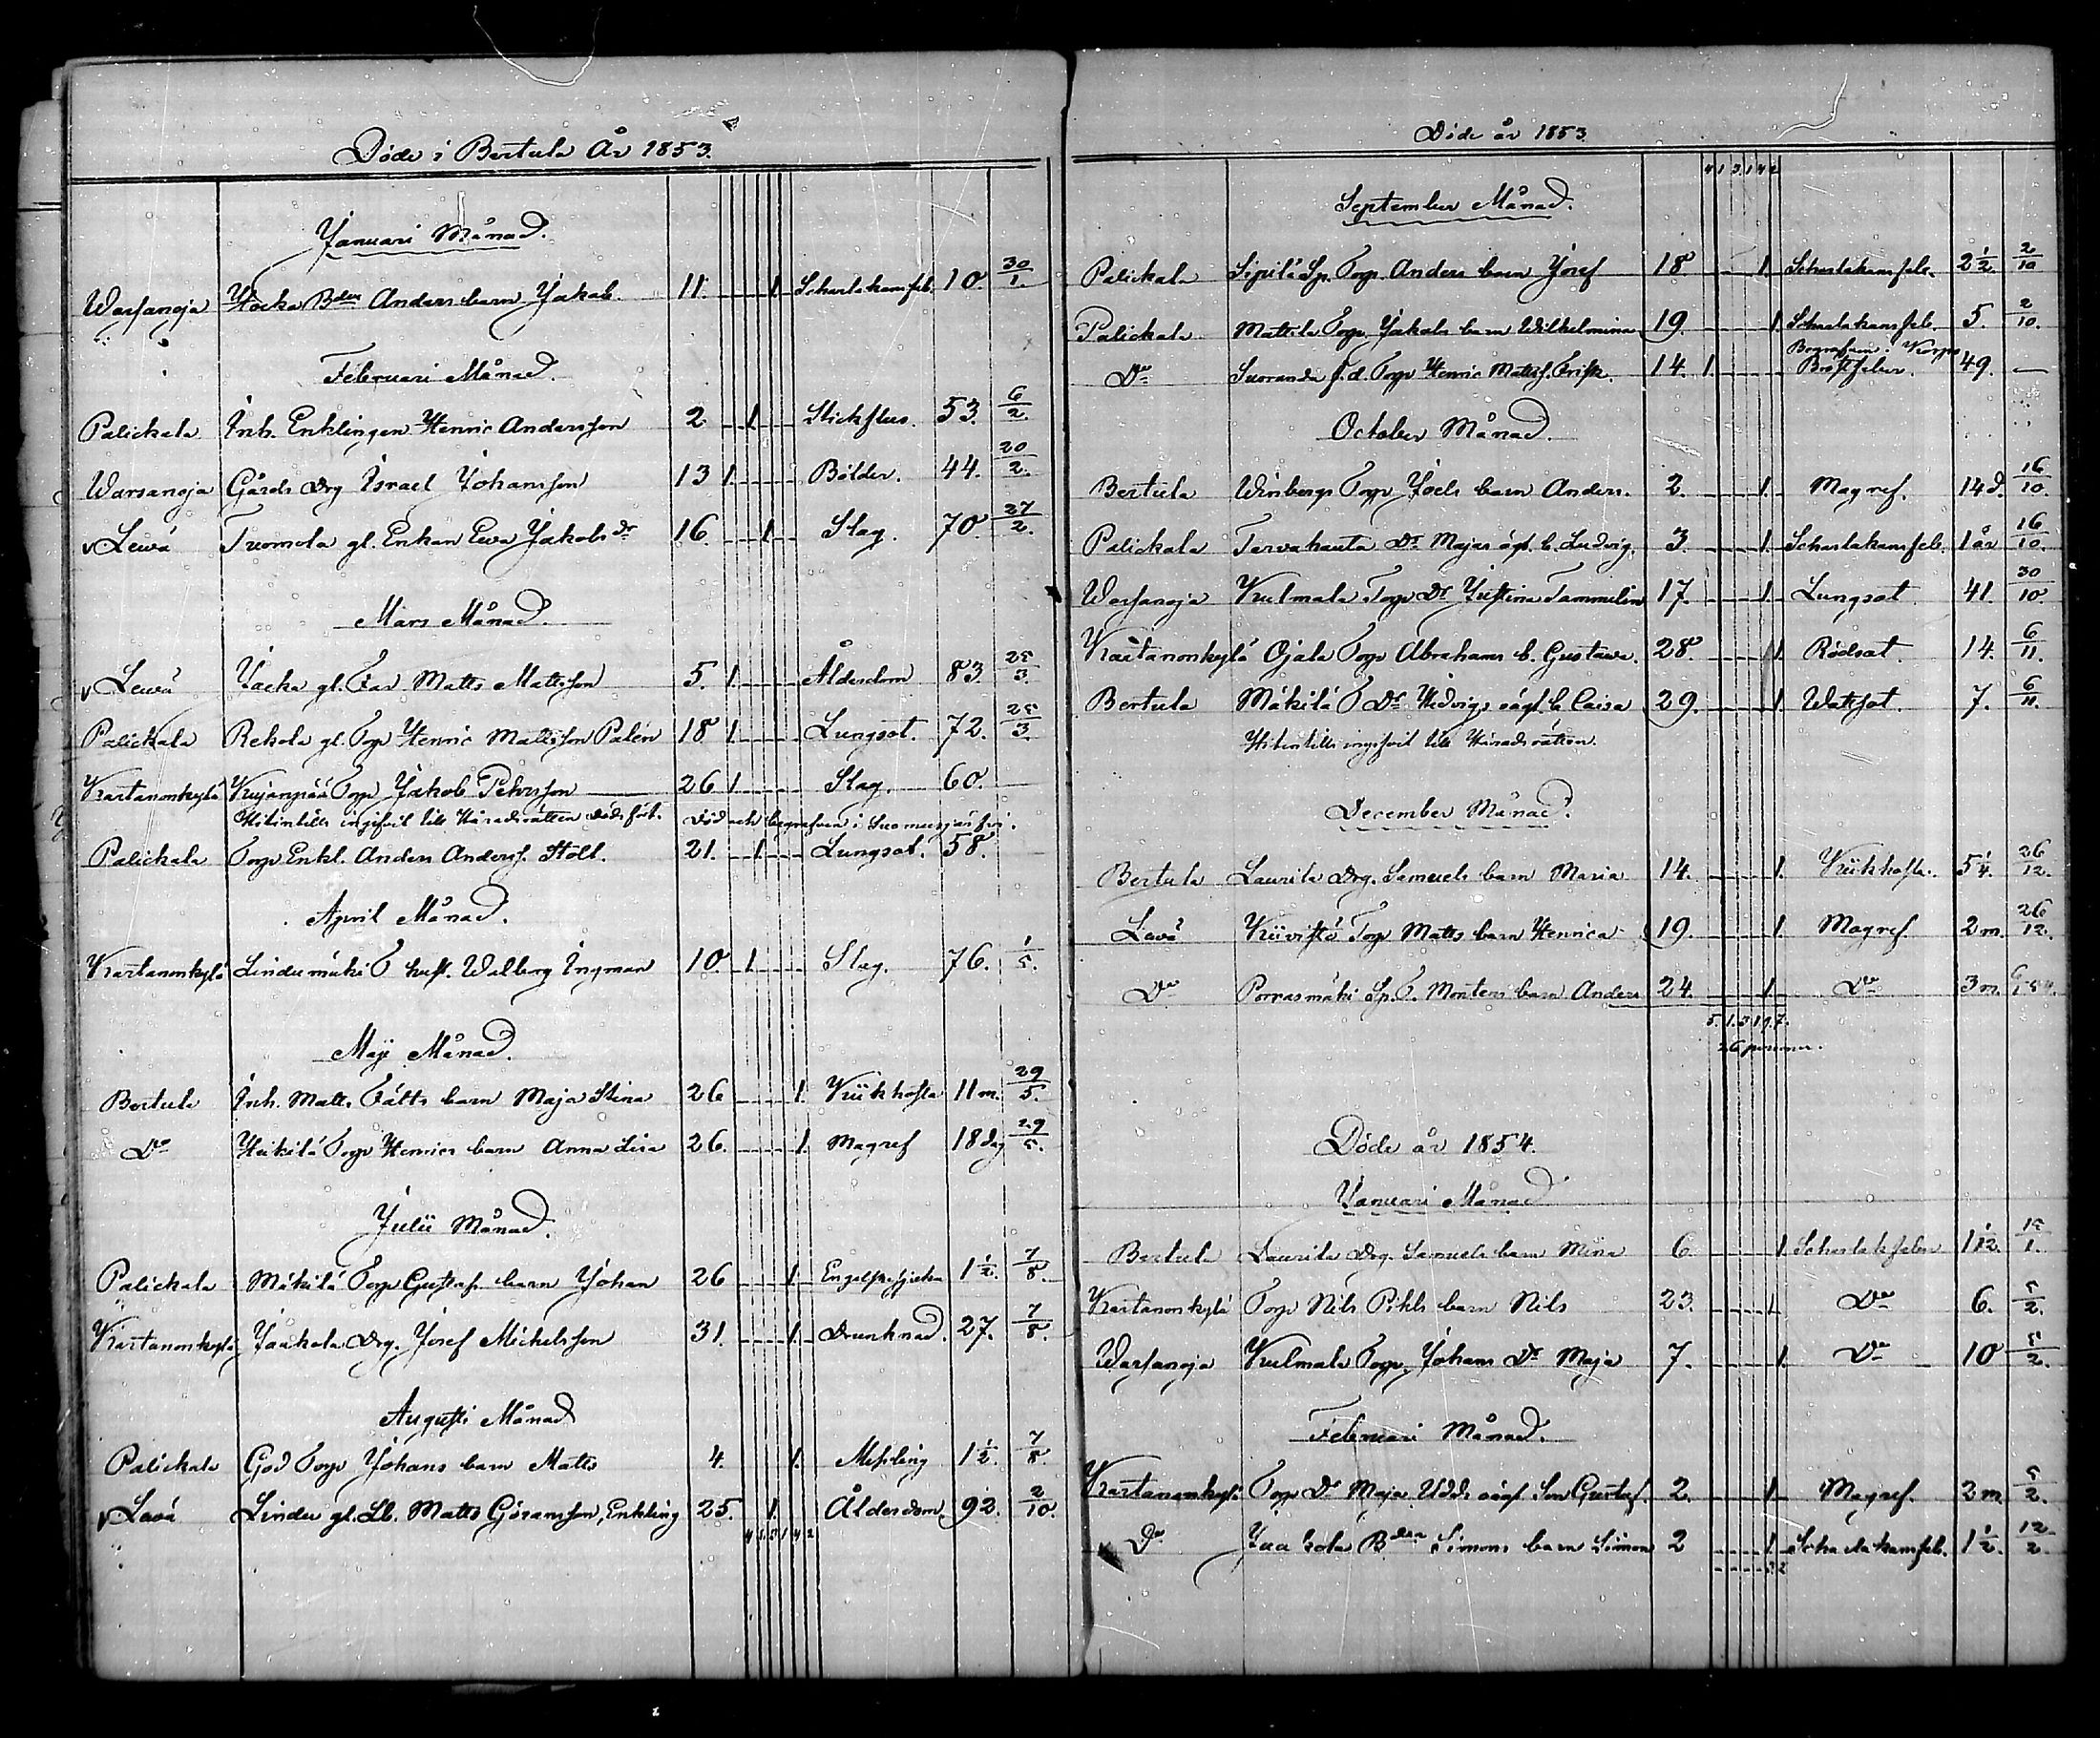 Döde i Bertula År 1853.
Januari Månad.
Warsanoja Yrcka Bden Anders barn Jakob. 11. 1 Scharlakansfeb. 10. 30/1.
Februari Månad.
Palickala Inh. Enklingen Henric Andersson 2 1 Stickflus. 53. 6/2
Warsanoja Gårds Drg Israel Johansson 13 1 Bölder. 44. 20/2.
v Lewä Tuomola gl. Enkan Ewa Jakobs dr 16. 1 Slag. 70. 27/2.
Mars Månad.
v Lewä Jacka gl. Far Matts Mattsson 5. 1 Ålderdom 83. 25/3
Palickala Rekola gl. Torp Henric Mattsson Palén 18 1 Lungsot. 72. 25/3.
Kartanonkylä Kujanpää Torp Jakob Petersson 26 1 Slag. 60.
Hitintills ingifvit till Häradsrätten Dödsfört. Död och begrafven i Suomusjärfvi.
Palickala Torp Enkl. Anders Anderss. Stoll. 21. 1 Lungsot. 58.
April Månad.
Kartanonkylä Lindumäki T hust. Walborg Ingman 10. 1 Slag. 76. 1/5.
Maji Månad.
Bertula Inh. Matts Fälts barn Maja Stina 26 1. Kikhosta 11 m. 29/5.
Do Heikilä Torp Henrics barn Anna Lisa 26. 1. Magref 18 dag 29/5.
Julii Månad.
Palickala Mäkilä Torp Gustafs barn Johan 26 1. Engelska sjukan 1 1/2. 7/8.
Kartanonkylä Jaakola Drg. Josef Michelsson 31. 1. Drunknad. 27. 7/8.
Augusti Månad
Palickala God Torp Johans barn Matts 4. 1. Messling 1 1/2. 7/8.
v Lavä Linder gl. Sb. Matts Göransson, Enkling 25. 1. Ålderdom. 92. 2/10.
4 1 3 1 4 2
Döde år 1853.
4 1 3 1 4 2
September Månad.
Palickala Sipilä Sp. Torp. Anders barn Josef 18 1 Scharlakansfeb. 2 1/2. 2/10
Palickala Mattila Torp. Jakobs barn Wilhelmina 19. 1 Scharlakansfeb. 5. 2/10.
Do Suoranda f. d. Torp Henric Mattss. Frisk. 14. 1. Bröstfeber. 49. —
October Månad.
Bertula Winbergs Torp Joels barn Anders. 2. 1. Magref. 14 d. 16/10.
Palickala Tervahauta Dr Majas oägt. b. Ludvig. 3. 1. Scharlakansfeb. 1 år 16/10.
Warsanoja Kulmala Torp Dr Justina Tammelin 17. 1. Lungsot. 41. 30/10.
Kartanonkylä Ojala Torp Abrahams b. Gustava. 28. 1. Rödsot. 14. 6/11.
Bertula Mäkilä T Dr Hedvigs oägt. b. Caisa 29. 1. Wattsot. 7. 6/11.
Hitintills ingifvit till Häradsrätten.
December Månad.
Bertula Laurila Drg. Samuels barn Maria 14. 1. Kikhosta. 5 1/4. 26/12.
Lavä Kivistö Torp Matts barn Henrica 19. 1. Magref. 2 m. 26/12.
Do Porrasmäki Sp. T. Mortens barn Anders 24. 1 Do 3 m.
26 personer.
Döde år 1854.
Januari Månad
Bertula Laurila Drg. Samuels barn Mina 6. 1 Scharlakfeber 1 1/2. 15/1.
Kartanonkylä Torp Nils Pihls barn Nils 23. 1 Do 6. 5/2.
Warsanoja Kulmala Torp. Johans Dr Maja 7. 1. Do 10 5/2.
Februari Månad.
Kartanonkylä Torp Dr Maja Udds oägt. Son Gustaf. 2. 1 Magref. 2 m 5/2.
Do Jaakola Bden Simons barn Simon 2 1 Scharlakansfeb. 1 1/2. 12/2.